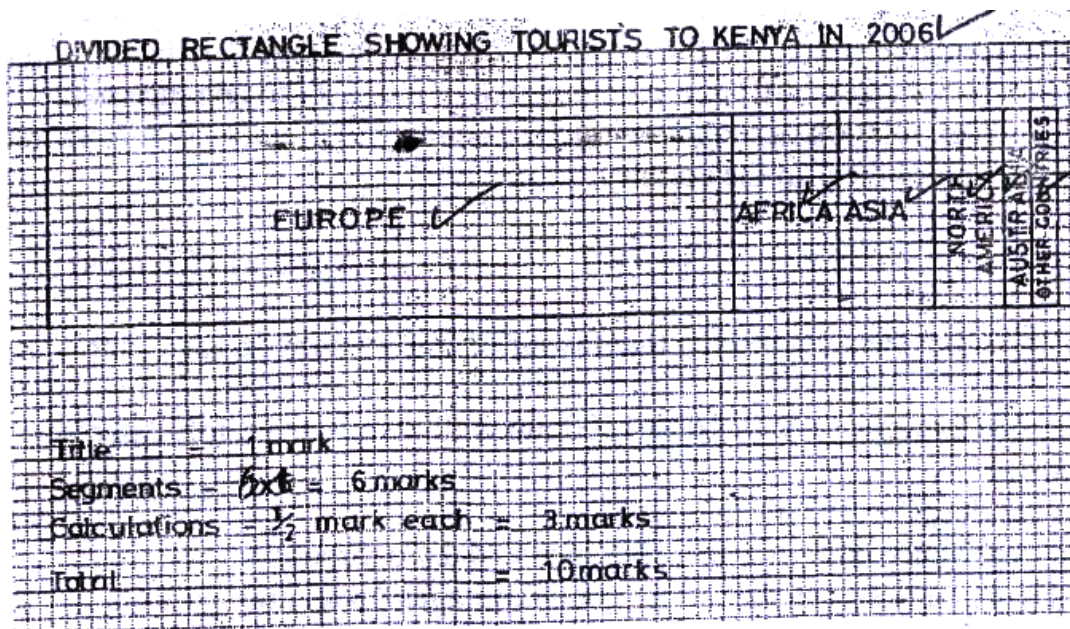 DIVIDED RECTANGLE SHOWING TOURISTS TO KENYA IN 2006
EUROPE
AFRICA
ASIA
NORTH
AMERICA
AUSTRALIA
OTHER COUNTRIES
Title = 1 mark
Segments = = 6 marks
Calculations = 1/2 mark each = 3 marks
Total = 10 marks